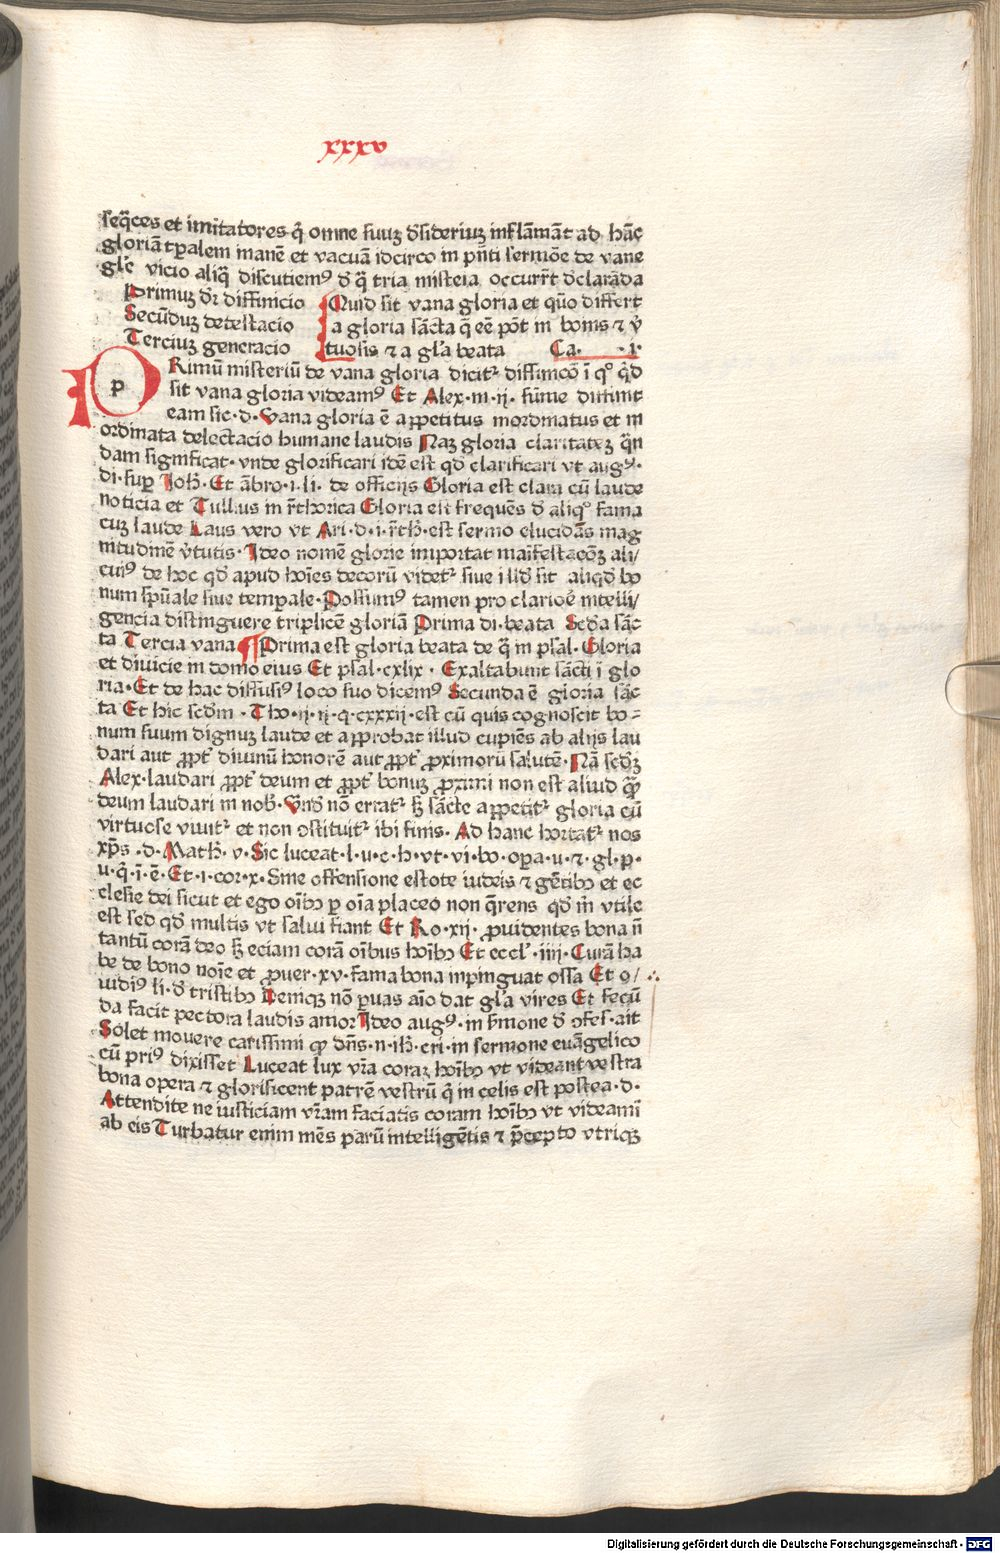 xxxv
seq̃ces et imitatores q̃ omne suuz dr̃siderium inflam̃ant ad hãc
gloriã tꝑalem inanẽ et vacuã idcirco in pñti sermõe de vane
gl'e vicio aliq̃ discutiem⁹ đ q̃ tria misteia occurrt̃ đclarãda
Primuz dr̃ diffinicio
Secũduz detestacio
Terciuz generacio
Quid sit vana gloria et quõ differt
a gloria sãcta q̃ eẽ põt in bonis ⁊ v̾
tuosis ⁊ a gl'a beata Ca. .i.
PRimũ misteriũ de vana gloria dicit᷑ diffinicõ ĩ q° q̃d
sit vana gloria videam⁹ Et Alex·in·ij· summe diffinit
eam sic·d·Vana gloria ẽ appetitus inordinatus et in
ordinata delectacio humane laudis Naz gloria claritatez q̃n
dam significat·vnde glorificari idẽ est qđ clarificari vt aug⁹·
di·sup̱ Joh̃·Et ãbro·i·li· de officijs Gloria est clara cũ laude
noticia et Tullius in rt̃horica Gloria est frequẽs đ aliq° fama
cuz laude Laus vero vt Ari·d·i·rt̃h·est sermo elucidãs mag
nitudinẽ v̾tutis·Ideo nomẽ glorie importat maĩfestacõz ali/
cui⁹ de hoc qđ apud hoĩes decorũ videt᷑ siue illđ sit aliqđ bo
num sp̃uale siue temꝑale·Possum⁹ tamen pro clarioẽ intelli/
gencia distinguere triplicẽ gloriã Prima di·beata Secđa sãc
ta Tercia vana ¶ Prima est gloria beata de q̃ in psal·Gloria
et diuicie in domo eius Et psal·cxlix·Exaltabunt sãcti ĩ glo
ria·Et de hac diffusi⁹ loco suo dicem⁹ Secunda ẽ gloria sãc
ta Et hic scđm·Tho·ij·ij·q·cxxxij·est cũ quis cognoscit bo⸗
num suum dignuz laude et approbat illud cupiẽs ab alijs lau
dari aut ꝓpt᷑ diuinũ honorẽ aut ꝓpt᷑ ꝓximorũ salutẽ·Nã scđz
Alex·laudari ꝓpt᷑ deum et ꝓpt᷑ bonuz ꝓximi non est aliud q̃ꝫ
deum laudari in nob̃·Vnđ nõ errat᷑ sꝫ sãcte appetit᷑ gloria cũ
virtuose viuit᷑ et non ꝯstituit᷑ ibi finis·Ad hanc hortat᷑ nos
xp̃s·d·Math̃·v·Sic luceat·l·v·c·h·vt·vi·bo·oꝑa·v·⁊·gl·p·
v·q̃·ĩ·ẽ·Et·i·cor·x·Sine offensione estote iudeis ⁊ gẽtibꝫ et ec
clesie dei sicut et ego oĩbꝫ ꝑ oĩa placeo non q̃rens qđ m̃ vtile
est sed qđ multis vt salui fiant Et Ro·xij·ꝓuidentes bona ñ
tantũ corã deo sꝫ eciam corã oĩbus hoĩbꝫ Et eccl'·iiij·Curã ha
be de bono noĩe et ꝓuer·xv·fama bona inpinguat ossa Et o/
uidi⁹ li·đ tristibꝫ Deniqꝫ nõ ꝑuas aĩo dat gl'a vires Et fecũ
da facit pectora laudis amor Ideo aug⁹·in s̾mone đ ꝯfes·ait
Solet mouere carissimi ꝙ dñs·n·ih̃·cri·in sermone euãgelico
cũ pri⁹ dixisset Luceat lux vr̃a coraz hoĩbꝫ vt videant vestra
bona opera ⁊ glorificent patrẽ vestrũ q̃ in celis est postea·d·
Attendite ne iusticiam vr̃am faciatis coram hoĩbꝫ vt videamĩ
ab eis Turbatur enim mẽs parũ intelligẽtis ⁊ p̃cepto vtriqꝫ
Digitalisierung gefördert durch die Deutsche Forschungsgemeinschaft - DFG